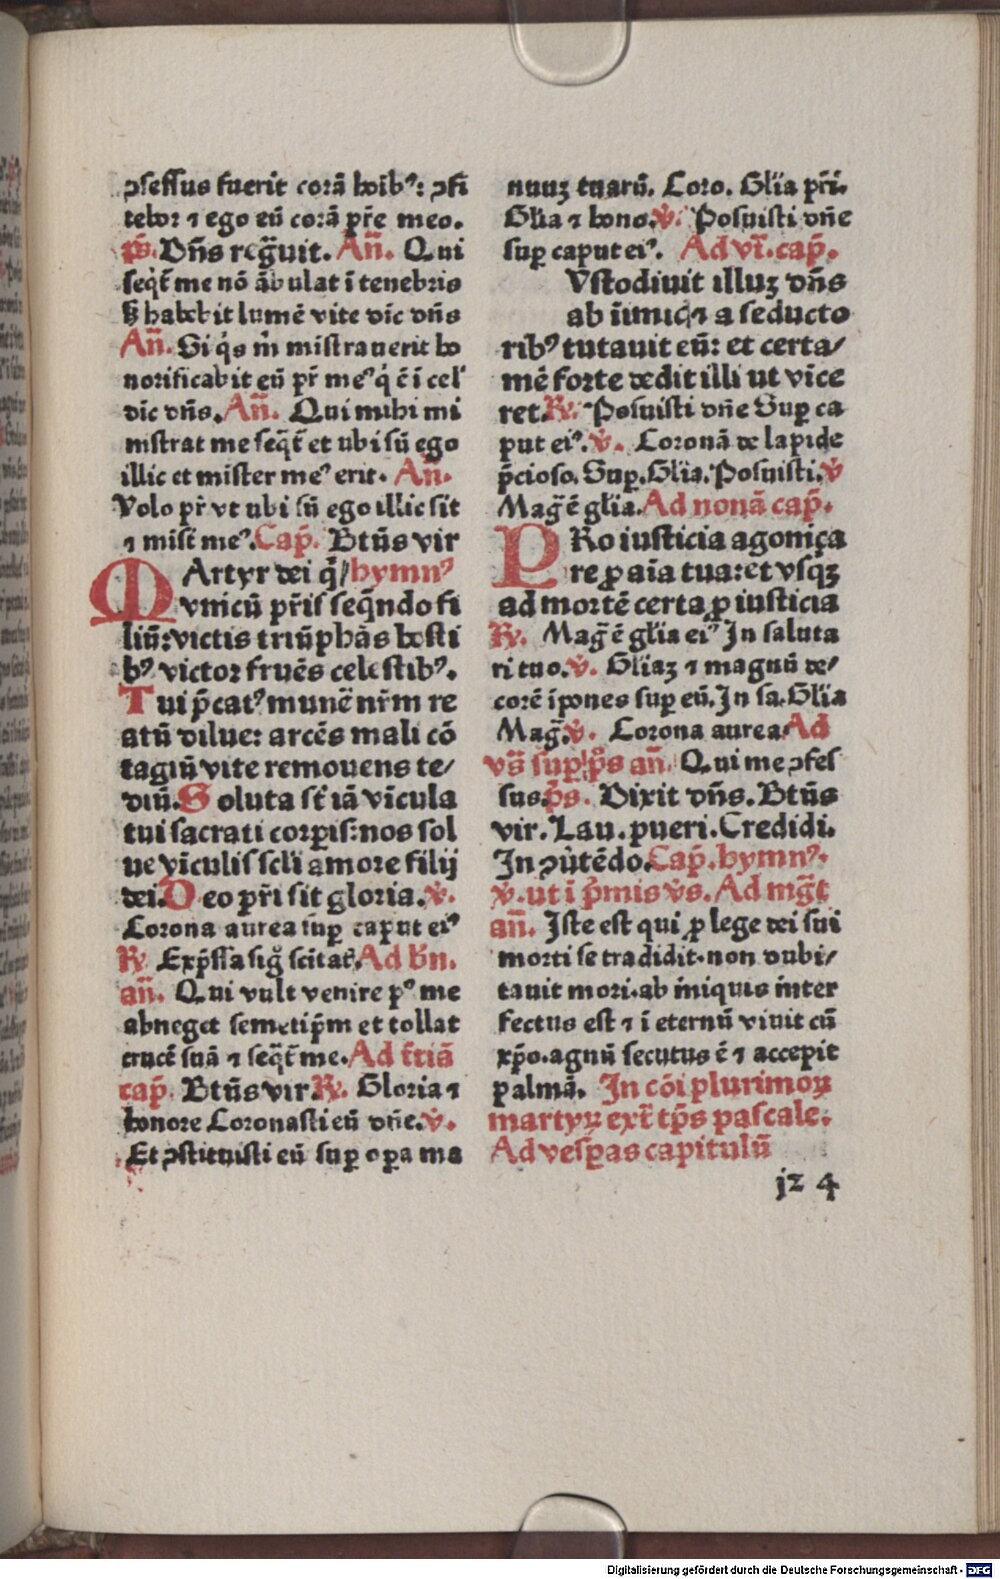 ↄfessus fuerit corā hoībꝰ: ↄfi
tebor ⁊ ego eū corā pr̄e meo.
ps̄. Dn̄s regꝫuit. An̄. Qui
seqͥt̄ me nō ābulat ī tenebris
sꝫ habebit lumē vite dīc dn̄s
An̄. Si qͥs m̄ mīstrauerit ho
norificabit eū pr̄ meꝰ qͥ ē ī cel'
dīc dn̄s. An̄. Qui mihi mi
nīstrat me seqͥt̄ et ubi sū ego
illic et mīster meꝰ erit. An̄.
Volo pr̄ vt ubi sū ego illic sit
⁊ misī meꝰ. Cap̄. Btūs vir
MArtyr dei q̄/ hymnꝰ
vnicū pr̄is seq̄ndo fi
liū: victis triūphās hosti
bꝰ victor fruēs celestibꝰ.
Tui p̄catꝰ munē nr̄m re
atū dilue: arcēs mali cō
tagiū vite remouens te/
diū. Soluta st̄ iā vīcula
tui sacrati corpis: nos sol
ue vīculis scl̄i amore filij
dei. Deo pr̄i sit gloria. v̄.
Corona aurea sup̱ caput eiꝰ
℞. Exp̄ssa sig̊ scitat̄. Ad b̄n.
an̄. Qui vult venire pꝰ me
abneget semetip̄m et tollat
crucē suā ⁊ seqͥt̄ me. Ad t̄riā
cap̄. Btūs vir ℞. Gloria ⁊
honore Coronasti eū dn̄e. v̄.
Et ↄstituisti eū sup̱ op̱a ma
nuuꝫ tuarū. Coro. Gl̄ia pr̄i.
Gl̄ia ⁊ hono. v̄. Posuisti dn̄e
sup̱ caput eiꝰ. Ad vī. cap̄.
Vstodiuit illuꝫ dn̄s
ab īimicꝭ ⁊ a seducto
ribꝰ tutauit eū: et certa/
mē forte dedit illi ut vīce
ret. ℞. Posuisti dn̄e Sup̱ ca
put eiꝰ. v̄. Coronā de lapide
p̄cioso. Sup̱. Gl̄ia. Posuisti. v̄
Mag̃ ē gl̄ia. Ad nonā cap̄.
PRo iusticia agoniça
re ꝓ aīa tua: et vsqꝫ
ad mortē certa ꝓ iusticia
℞. Mag̃ ē gl̄ia eiꝰ In saluta
ri tuo. v̄. Gl̄iaꝫ ⁊ magnū de/
corē īpones sup̱ eū. In sa. Gl̄ia
Mag̃. v̄. Corona aurea Ad
vs̄ sup̱ ps̄ an̄. Qui me ↄfes
sus. ps̄. Dixit dn̄s. Btūs
vir. Lau. pueri. Credidi.
In ↄūtēdo. Cap̄. hymnꝰ.
v̄. ut ī p̄mis v̄s. Ad mg̃t
an̄. Iste est qui ꝓ lege dei sui
morti se tradidit. non dubi/
tauit mori. ab iniquis inter
fectus est ⁊ ī eternū viuit cū
xp̄o. agnū secutus ē ⁊ accepit
palmā. In cōi plurimoꝝ
martyꝝ ext̄ tp̄s pascale.
Ad vesp̱as capitulū
jz4
Digitalisierung gefördert durch die Deutsche Forschungsgemeinschaft - DFG